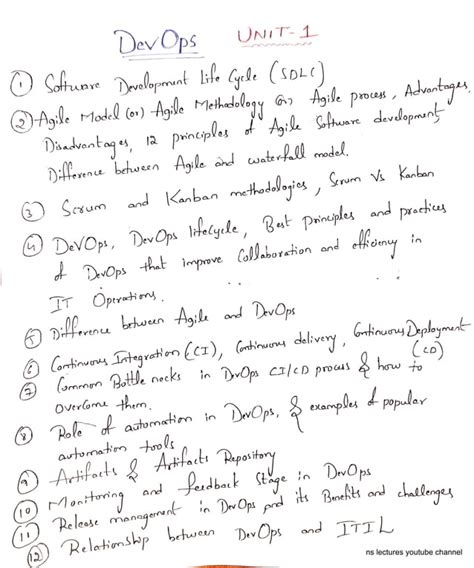 DevOps UNIT-1
① Software Development Life Cycle (SDLC)
② Agile Model (or) Agile Methodology (or) Agile process, Advantages,
Disadvantages, 12 principles of Agile Software development,
Difference between Agile and waterfall model.
③ Scrum and Kanban methodologies, Scrum Vs Kanban
④ DevOps, DevOps lifecycle, Best Principles and practices
of DevOps that improve Collaboration and efficiency in
IT Operations.
⑤ Difference between Agile and DevOps
⑥ Continuous Integration (CI), Continuous delivery, Continuous Deployment
(CD)
⑦ Common Bottle necks in DevOps CI/CD process & how to
overcome them.
⑧ Role of automation in DevOps, & examples of popular
automation tools
⑨ Artifacts & Artifacts Repository
⑩ Monitoring and feedback Stage in DevOps
⑪ Release management in DevOps and its Benefits and challenges
⑫ Relationship between DevOps and ITIL
ns lectures youtube channel